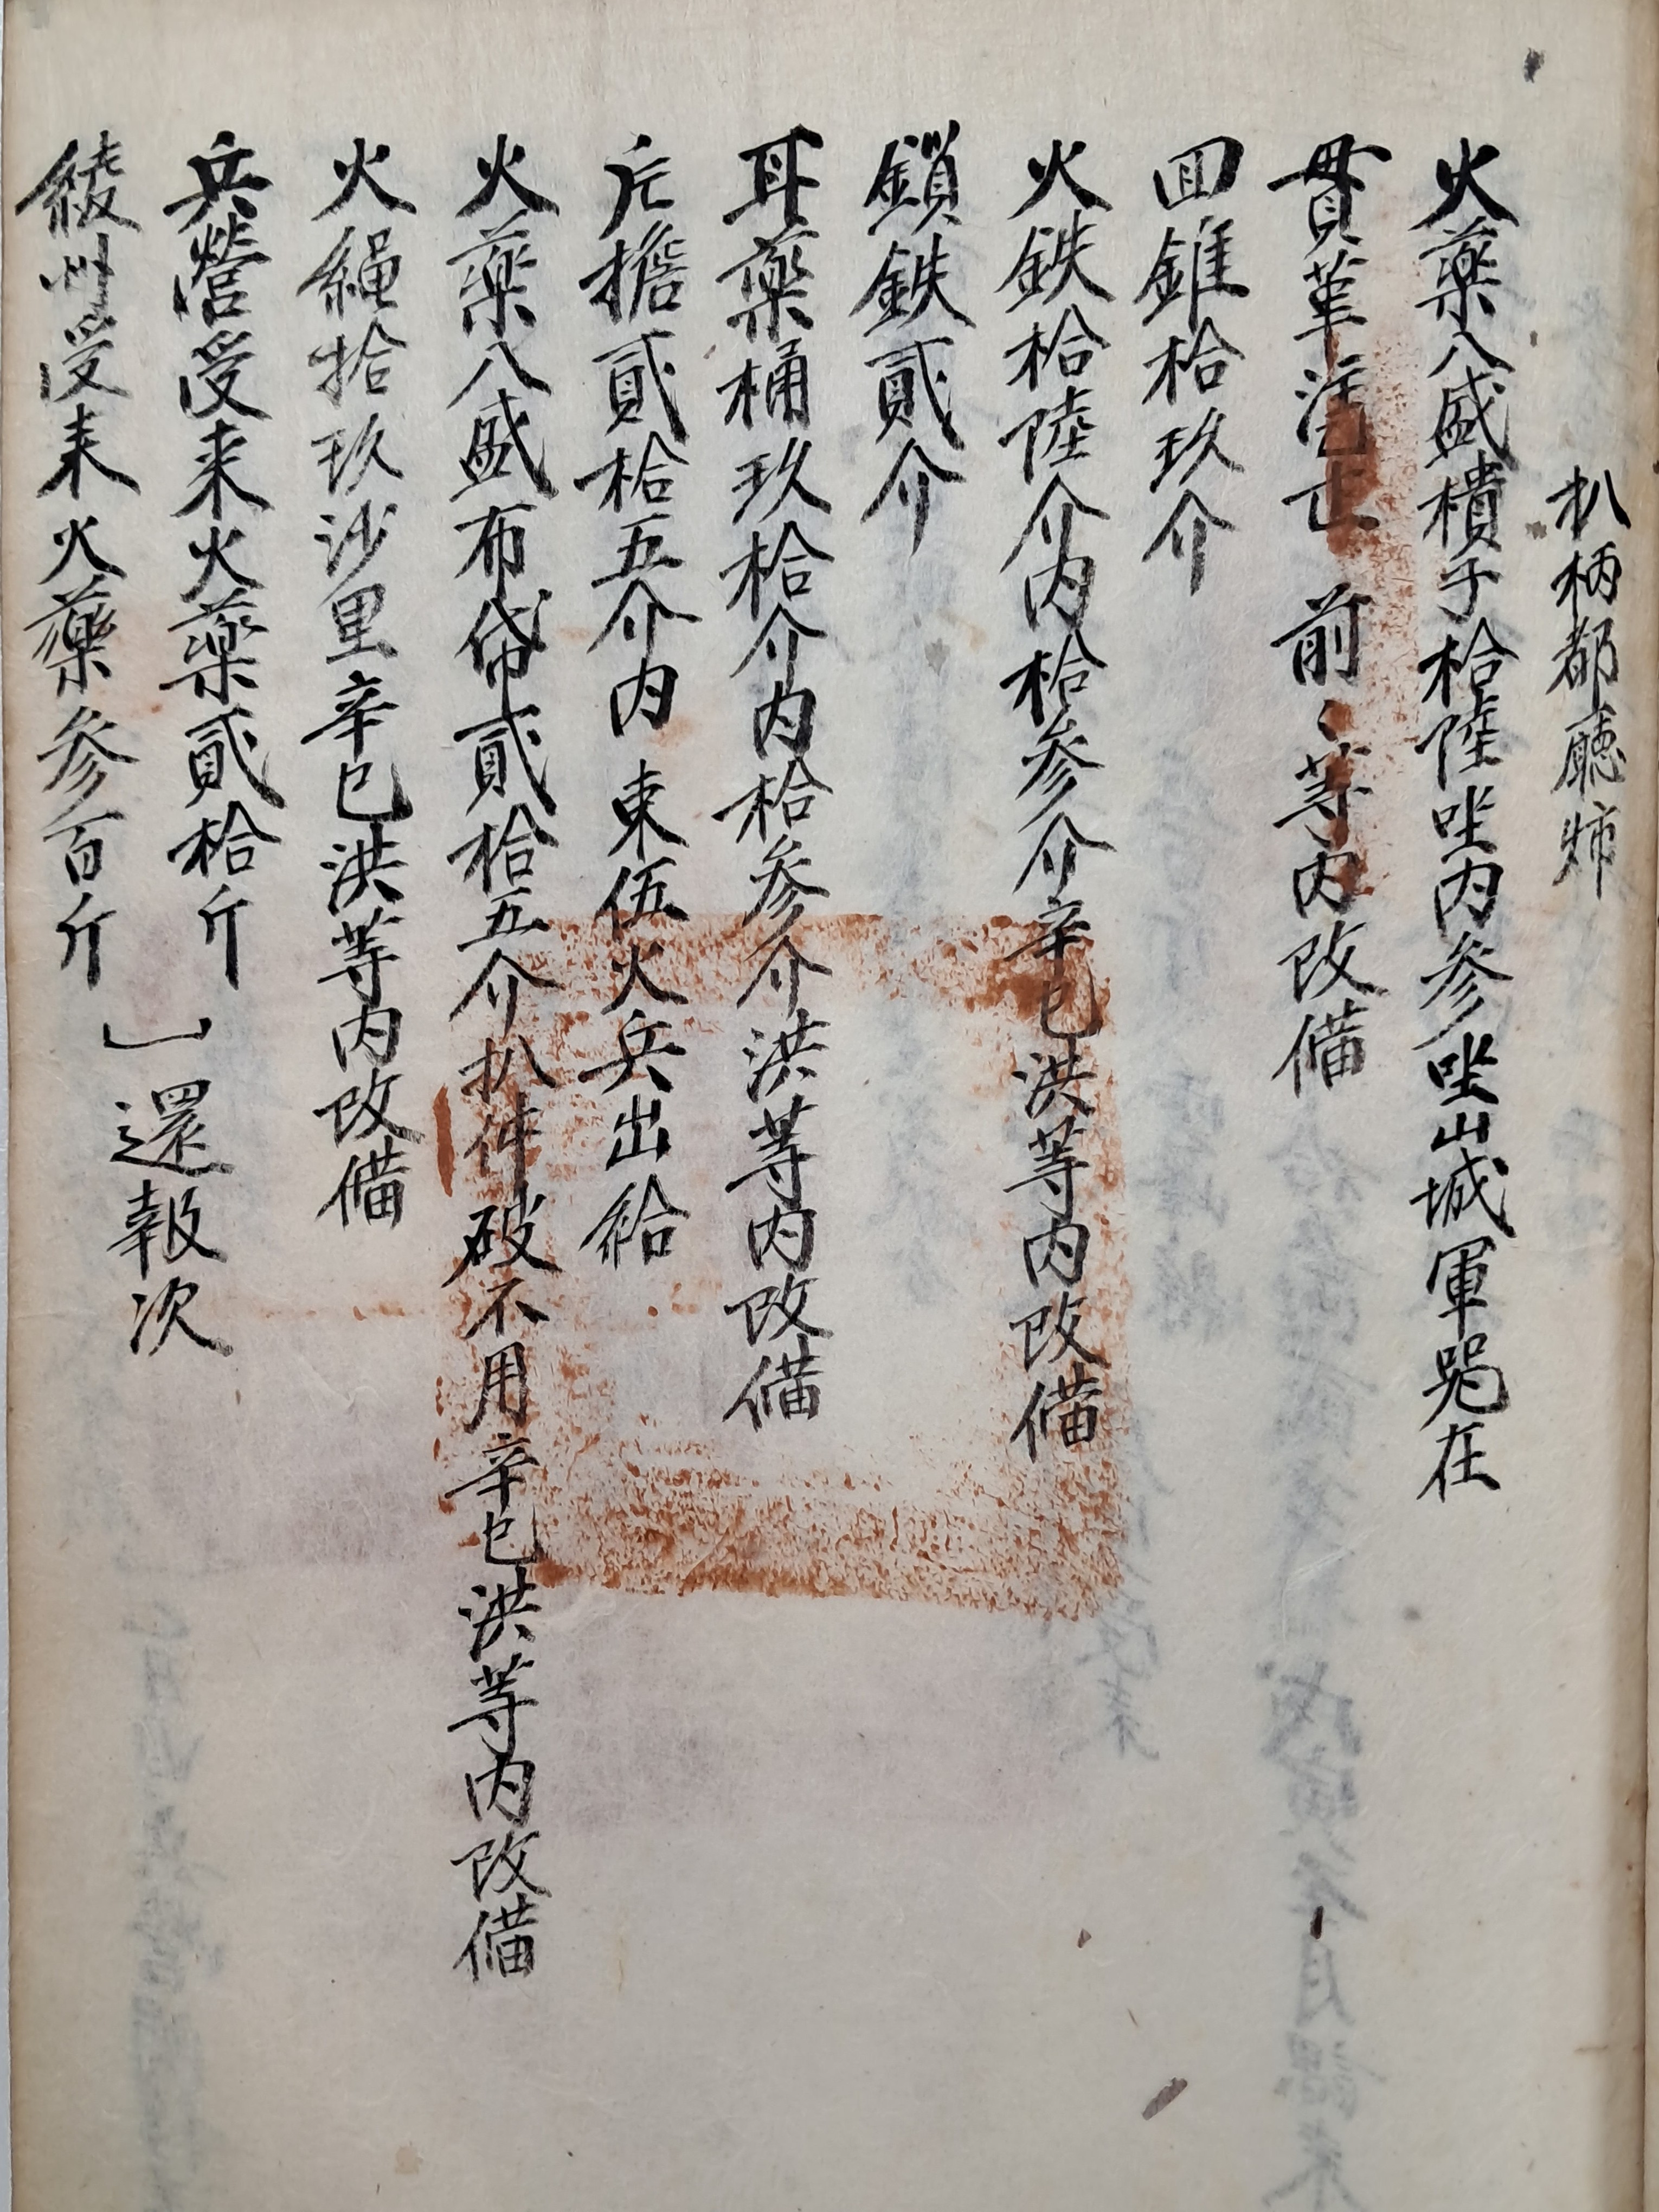 扒柄都廳
火藥八盛樻子拾陸坐內參坐山城軍器在
貫革 前等內改備
回錐拾玖介
火鉄拾陸介內拾參介辛巳洪等內改備
鎖鉄貳介
耳藥桶玖拾介內拾參介洪等內改備
擔貳拾五介內 束伍火兵出給
火藥八盛布帒貳拾五介扒件破不用辛巳洪等內改備
火繩拾玖沙里辛巳洪等內改備
兵營受来火藥貳拾斤
綾州受来火藥參百斤
還報次